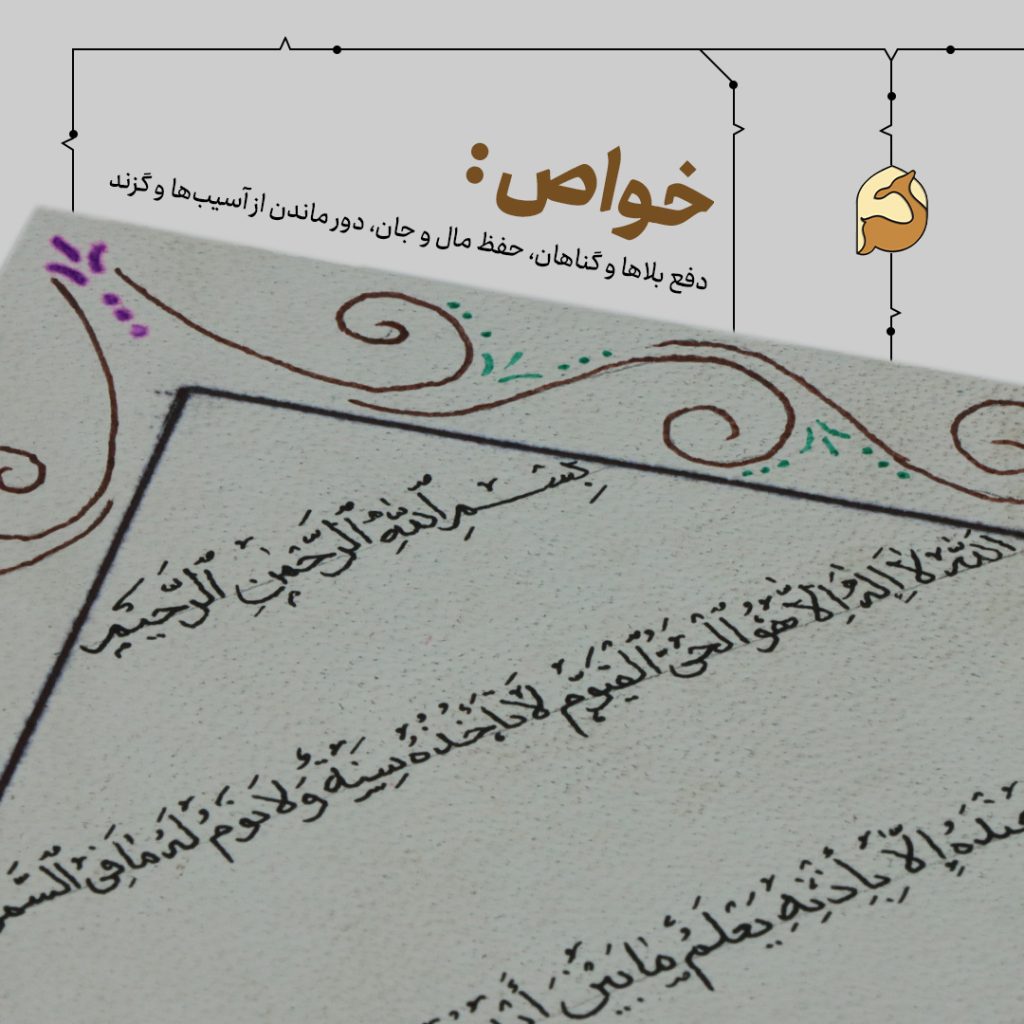 خواص:
دفع بلاها و گناهان، حفظ مال و جان، دور ماندن از آسیب‌ها و گزند
بِسْمِ اللَّهِ الرَّحْمَٰنِ الرَّحِيمِ
اللَّهُ لَا إِلَٰهَ إِلَّا هُوَ الْحَيُّ الْقَيُّومُ لَا تَأْخُذُهُ سِنَةٌ وَلَا نَوْمٌ لَهُ مَا فِي
إِلَّا بِإِذْنِهِ يَعْلَمُ مَا بَيْنَ